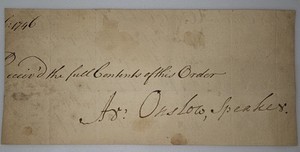 1746
Receiv'd the full Contents of this Order
Ar: Onslow, Speaker.